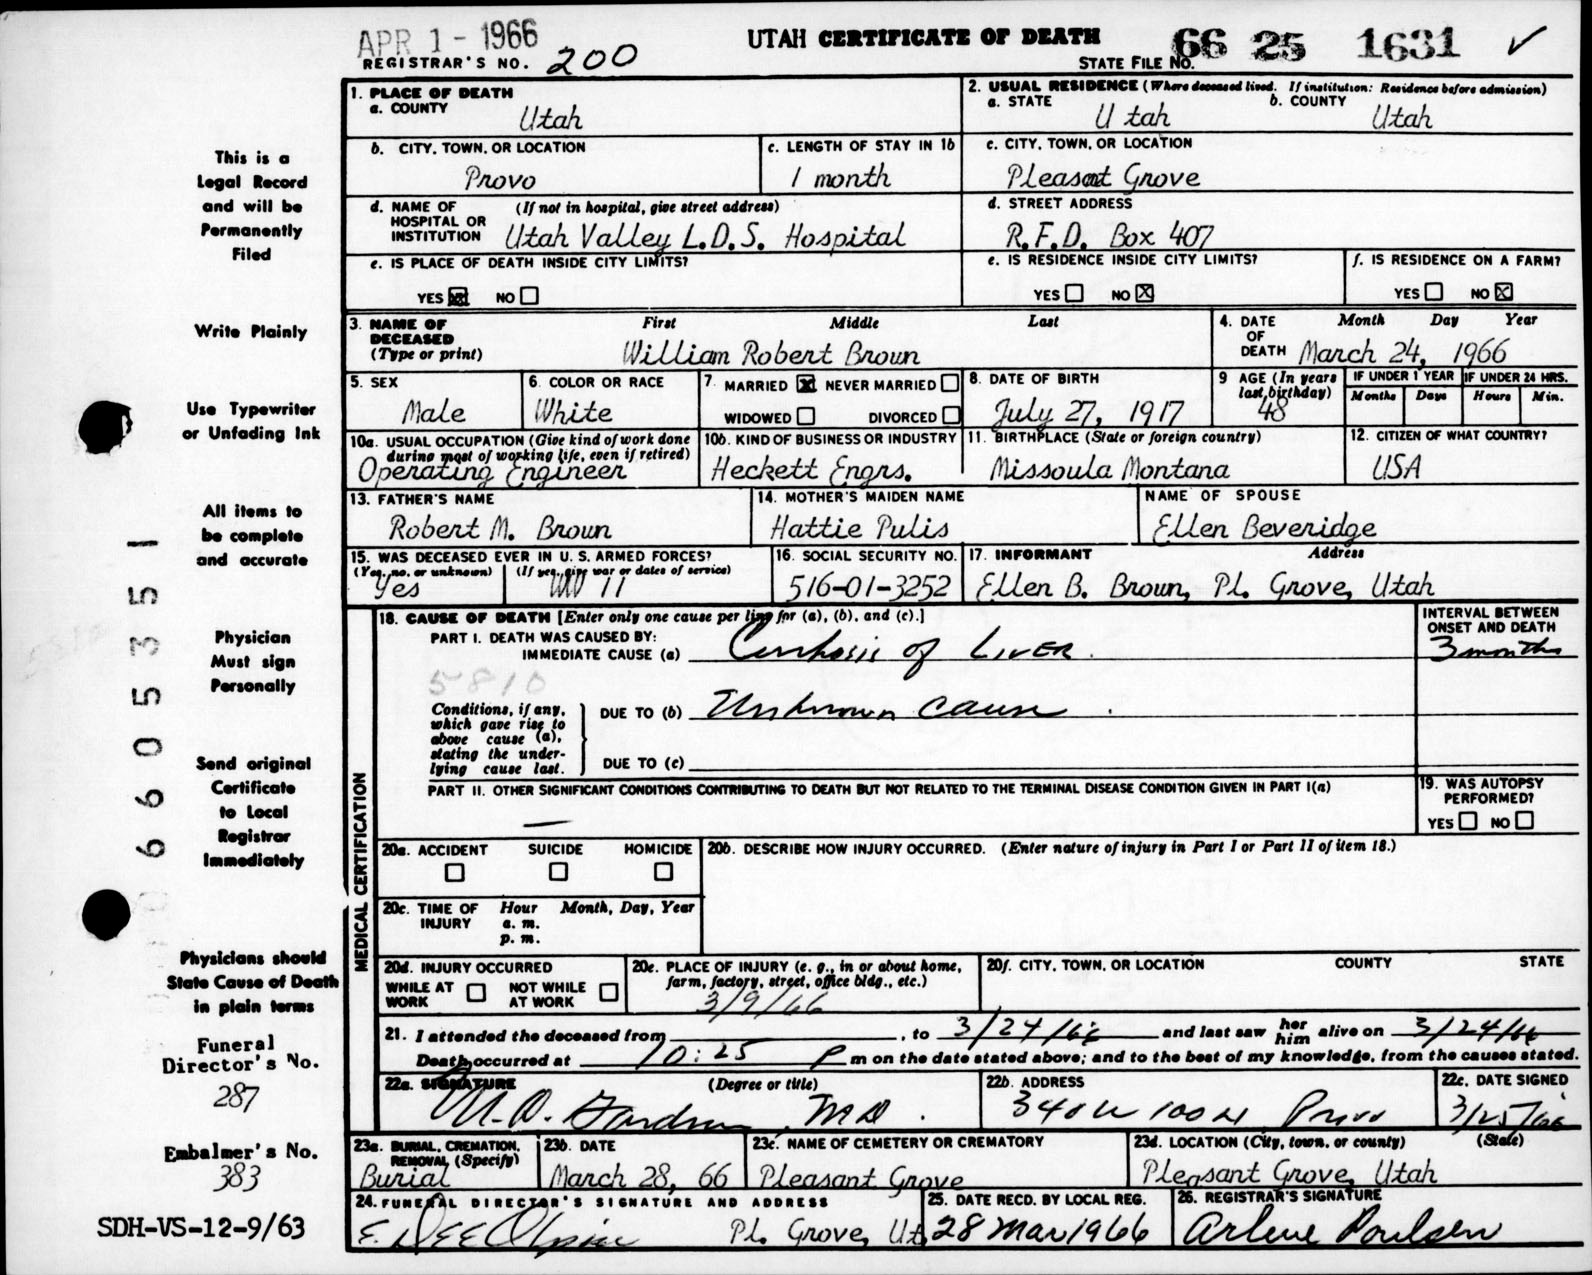 APR 1 - 1966
REGISTRAR'S NO. 200
UTAH CERTIFICATE OF DEATH
STATE FILE NO. 66 25 1631 ✓
This is a
Legal Record
and will be
Permanently
Filed
Write Plainly
Use Typewriter
or Unfading Ink
All items to
be complete
and accurate
Physician
Must sign
Personally
Send original
Certificate
to Local
Registrar
Immediately
Physicians should
State Cause of Death
in plain terms
Funeral
Director's No.
287
Embalmer's No.
383
SDH-VS-12-9/63
660535 1
1. PLACE OF DEATH
a. COUNTY
Utah
2. USUAL RESIDENCE (Where deceased lived. If institution: Residence before admission)
a. STATE b. COUNTY
U tah Utah
b. CITY, TOWN, OR LOCATION
Provo
c. LENGTH OF STAY IN 1b
1 month
c. CITY, TOWN, OR LOCATION
Pleasant Grove
d. NAME OF (If not in hospital, give street address)
HOSPITAL OR
INSTITUTION Utah Valley L.D.S. Hospital
d. STREET ADDRESS
R.F.D. Box 407
e. IS PLACE OF DEATH INSIDE CITY LIMITS?
YES ☒ NO ☐
e. IS RESIDENCE INSIDE CITY LIMITS?
YES ☐ NO ☒
f. IS RESIDENCE ON A FARM?
YES ☐ NO ☒
3. NAME OF First Middle Last
DECEASED
(Type or print) William Robert Brown
4. DATE Month Day Year
OF
DEATH March 24, 1966
5. SEX
Male
6. COLOR OR RACE
White
7. MARRIED ☒ NEVER MARRIED ☐
WIDOWED ☐ DIVORCED ☐
8. DATE OF BIRTH
July 27, 1917
9 AGE (In years
last birthday)
48
IF UNDER 1 YEAR IF UNDER 24 HRS.
Months Days Hours Min.
10a. USUAL OCCUPATION (Give kind of work done
during most of working life, even if retired)
Operating Engineer
10b. KIND OF BUSINESS OR INDUSTRY
Heckett Engrs.
11. BIRTHPLACE (State or foreign country)
Missoula Montana
12. CITIZEN OF WHAT COUNTRY?
USA
13. FATHER'S NAME
Robert M. Brown
14. MOTHER'S MAIDEN NAME
Hattie Pulis
NAME OF SPOUSE
Ellen Beveridge
15. WAS DECEASED EVER IN U. S. ARMED FORCES?
(Yes, no, or unknown) (If yes, give war or dates of service)
Yes WW 11
16. SOCIAL SECURITY NO.
516-01-3252
17. INFORMANT Address
Ellen B. Brown, Pl. Grove, Utah
MEDICAL CERTIFICATION
18. CAUSE OF DEATH [Enter only one cause per line for (a), (b), and (c).]
PART I. DEATH WAS CAUSED BY:
IMMEDIATE CAUSE (a) Cirrhosis of LIVER.
5810
Conditions, if any,
which gave rise to
above cause (a),
stating the under-
lying cause last.
DUE TO (b) Unknown cause.
DUE TO (c)
INTERVAL BETWEEN
ONSET AND DEATH
3 months
PART II. OTHER SIGNIFICANT CONDITIONS CONTRIBUTING TO DEATH BUT NOT RELATED TO THE TERMINAL DISEASE CONDITION GIVEN IN PART I(a)
—
19. WAS AUTOPSY
PERFORMED?
YES ☐ NO ☐
20a. ACCIDENT SUICIDE HOMICIDE
☐ ☐ ☐
20b. DESCRIBE HOW INJURY OCCURRED. (Enter nature of injury in Part I or Part II of item 18.)
20c. TIME OF Hour Month, Day, Year
INJURY a. m.
p. m.
20d. INJURY OCCURRED
WHILE AT ☐ NOT WHILE ☐
WORK AT WORK
20e. PLACE OF INJURY (e. g., in or about home,
farm, factory, street, office bldg., etc.)
20f. CITY, TOWN, OR LOCATION COUNTY STATE
3/9/66
21. I attended the deceased from , to 3/24/66 and last saw her him alive on 3/24/66
Death occurred at 10:25 P m on the date stated above; and to the best of my knowledge, from the causes stated.
22a. SIGNATURE (Degree or title)
MD.
22b. ADDRESS
340 W 100 N Provo
22c. DATE SIGNED
3/25/66
23a. BURIAL, CREMATION,
REMOVAL (Specify)
Burial
23b. DATE
March 28, 66
23c. NAME OF CEMETERY OR CREMATORY
Pleasant Grove
23d. LOCATION (City, town, or county) (State)
Pleasant Grove, Utah
24. FUNERAL DIRECTOR'S SIGNATURE AND ADDRESS
Pl. Grove, Ut.
25. DATE RECD. BY LOCAL REG.
28 Mar 1966
26. REGISTRAR'S SIGNATURE
Arlene Poulsen